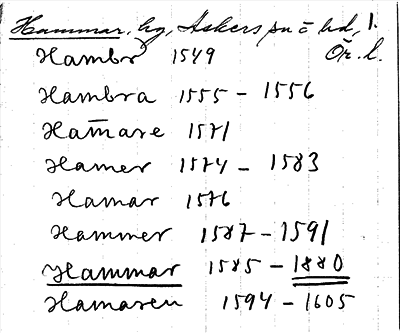 Hammar, hg, Askers sn o hd, l.
Hambr 1549 Ör. l.
Hambra 1555 - 1556
Ham̄are 1571
Hamer 1574 - 1583
Hamar 1576
Hammer 1587 - 1591
Hammar 1585 - 1880
Hamaren 1594 - 1605